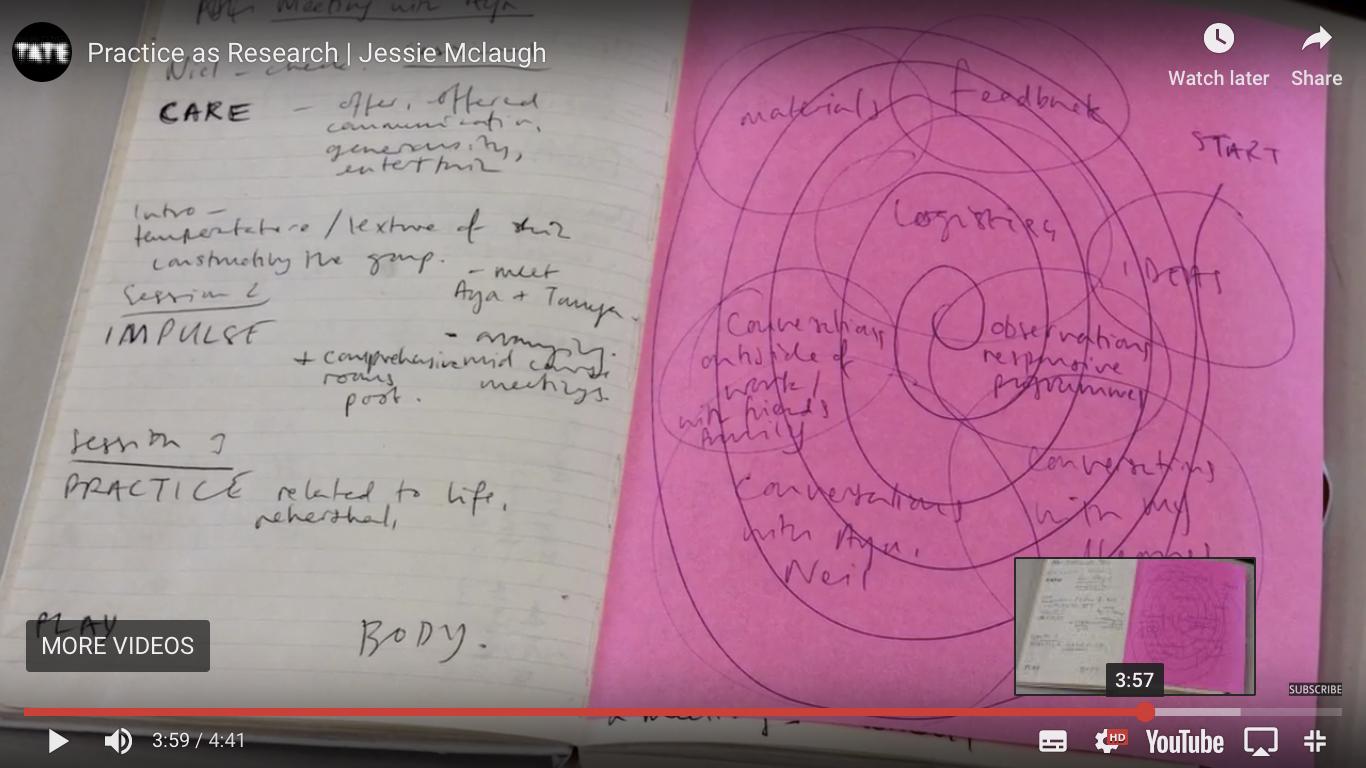 TATE
Practice as Research | Jessie Mclaugh
Watch later
Share
Meeting with Aya
CARE – offer, offered
communication,
generosity,
Intro –
temperature / texture of
constructing the group.
– meet
Aya + Tanya.
Session 2
IMPULSE
+ comprehensive mid
rooms meetings
post.
Session 3
PRACTICE related to life,
rehearsal,
PLAY
BODY.
materials
feedback
START
Logistics
IDEAS
Conversations
outside of
work /
with friends
family
observations
responsive
programmes
Conversations
with Aya,
Neil
Conversations
with my
MORE VIDEOS
3:57
SUBSCRIBE
3:59 / 4:41
HD
YouTube